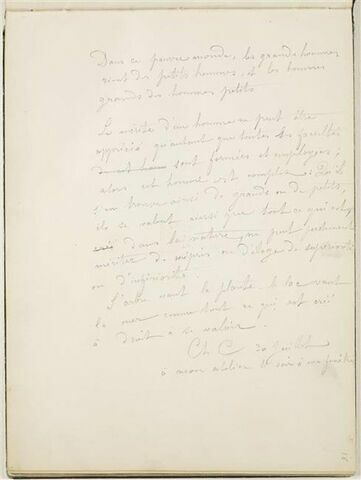 Dans ce pauvre monde, les grands hommes
sont des petits hommes, et les hommes
grands des hommes petits
Le mérite d'un homme ne peut être
apprécié qu'autant que toutes les facultés
sont formées et employées ;
alors cet homme est complet. Qu'il
s'en trouve ainsi de grands ou de petits,
ils se valent ainsi que tout ce qui est
créé dans la nature, ne peut justement
mériter de mépris ou d'éloge de supériorité
ou d'infériorité.
L'arbre vaut la plante, le lac vaut
la mer comme tout ce qui est créé
a droit à se valoir.
Ch C 30 Juillet
à mon atelier le soir à ma fenêtre